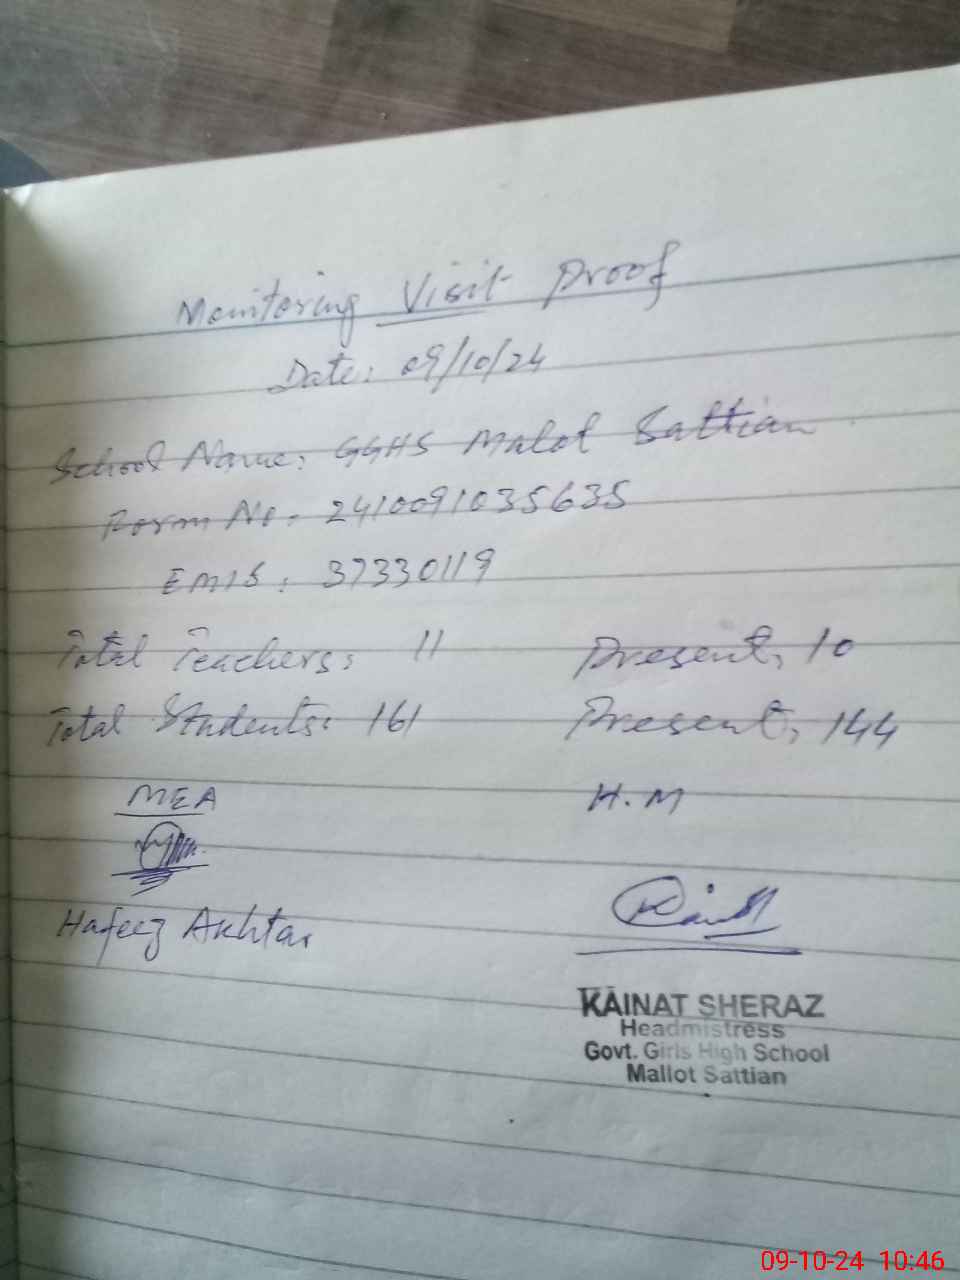 Monitoring Visit Proof
Date: 09/10/24
School Name: GGHS Malot Sattian
Form No. 2410091035635
EMIS: 37330119
Total Teachers: 11 Present, 10
Total Students: 161 Present, 144
MEA H.M
Hafeez Akhtar
KAINAT SHERAZ
Headmistress
Govt. Girls High School
Mallot Sattian
09-10-24 10:46